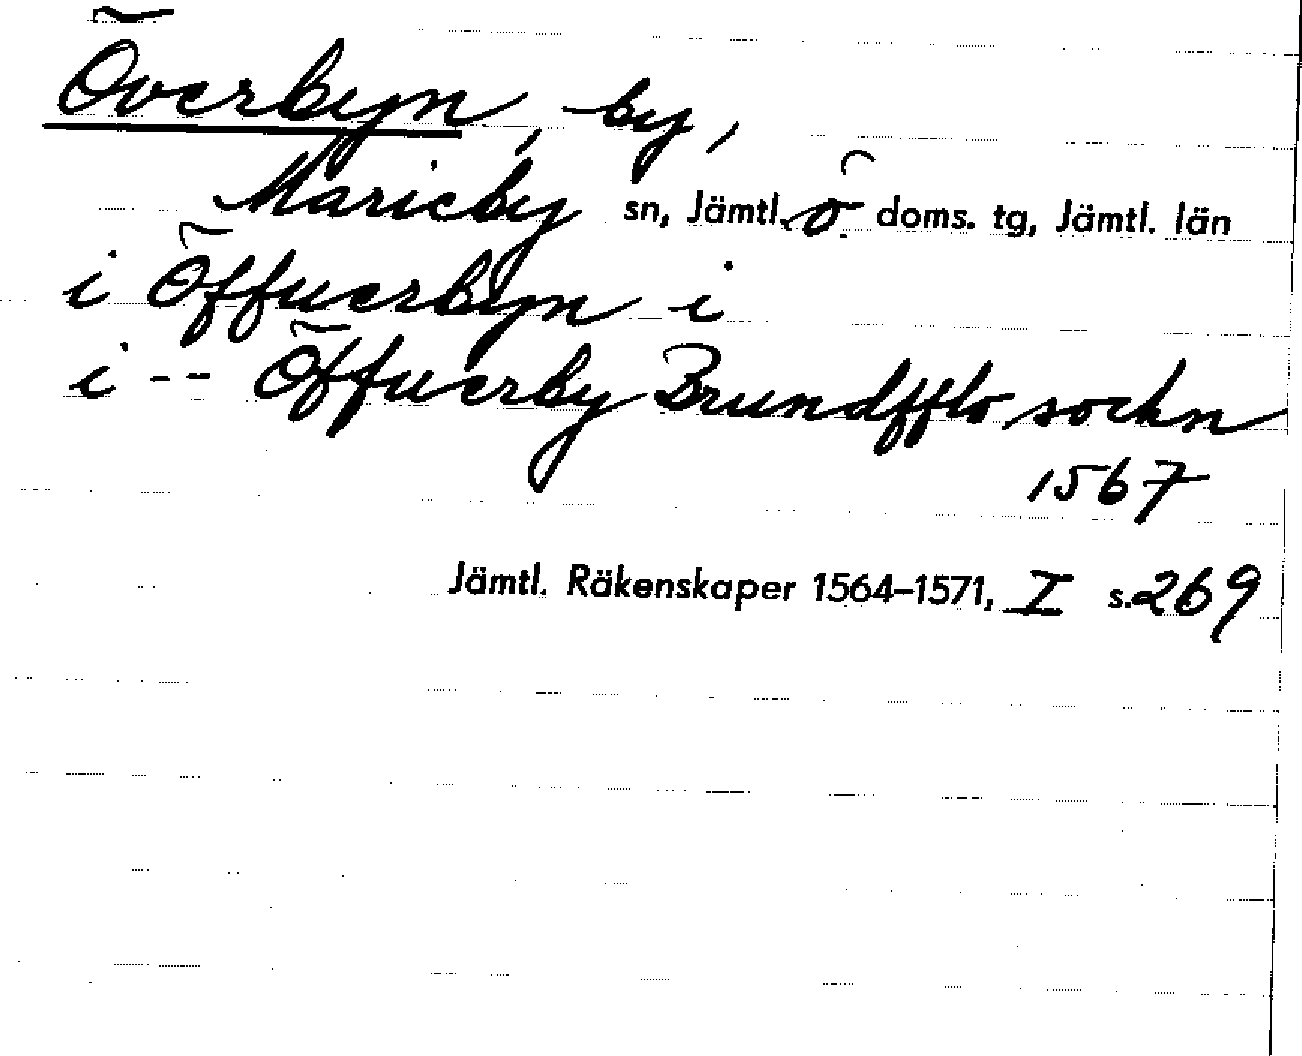 Överbyn, by,
Marieby sn, Jämtl. ö doms. tg, Jämtl. län
i Öffuerbyn i
i -- Öffuerby Brundfflo sockn
1567
Jämtl. Räkenskaper 1564–1571, I s. 269